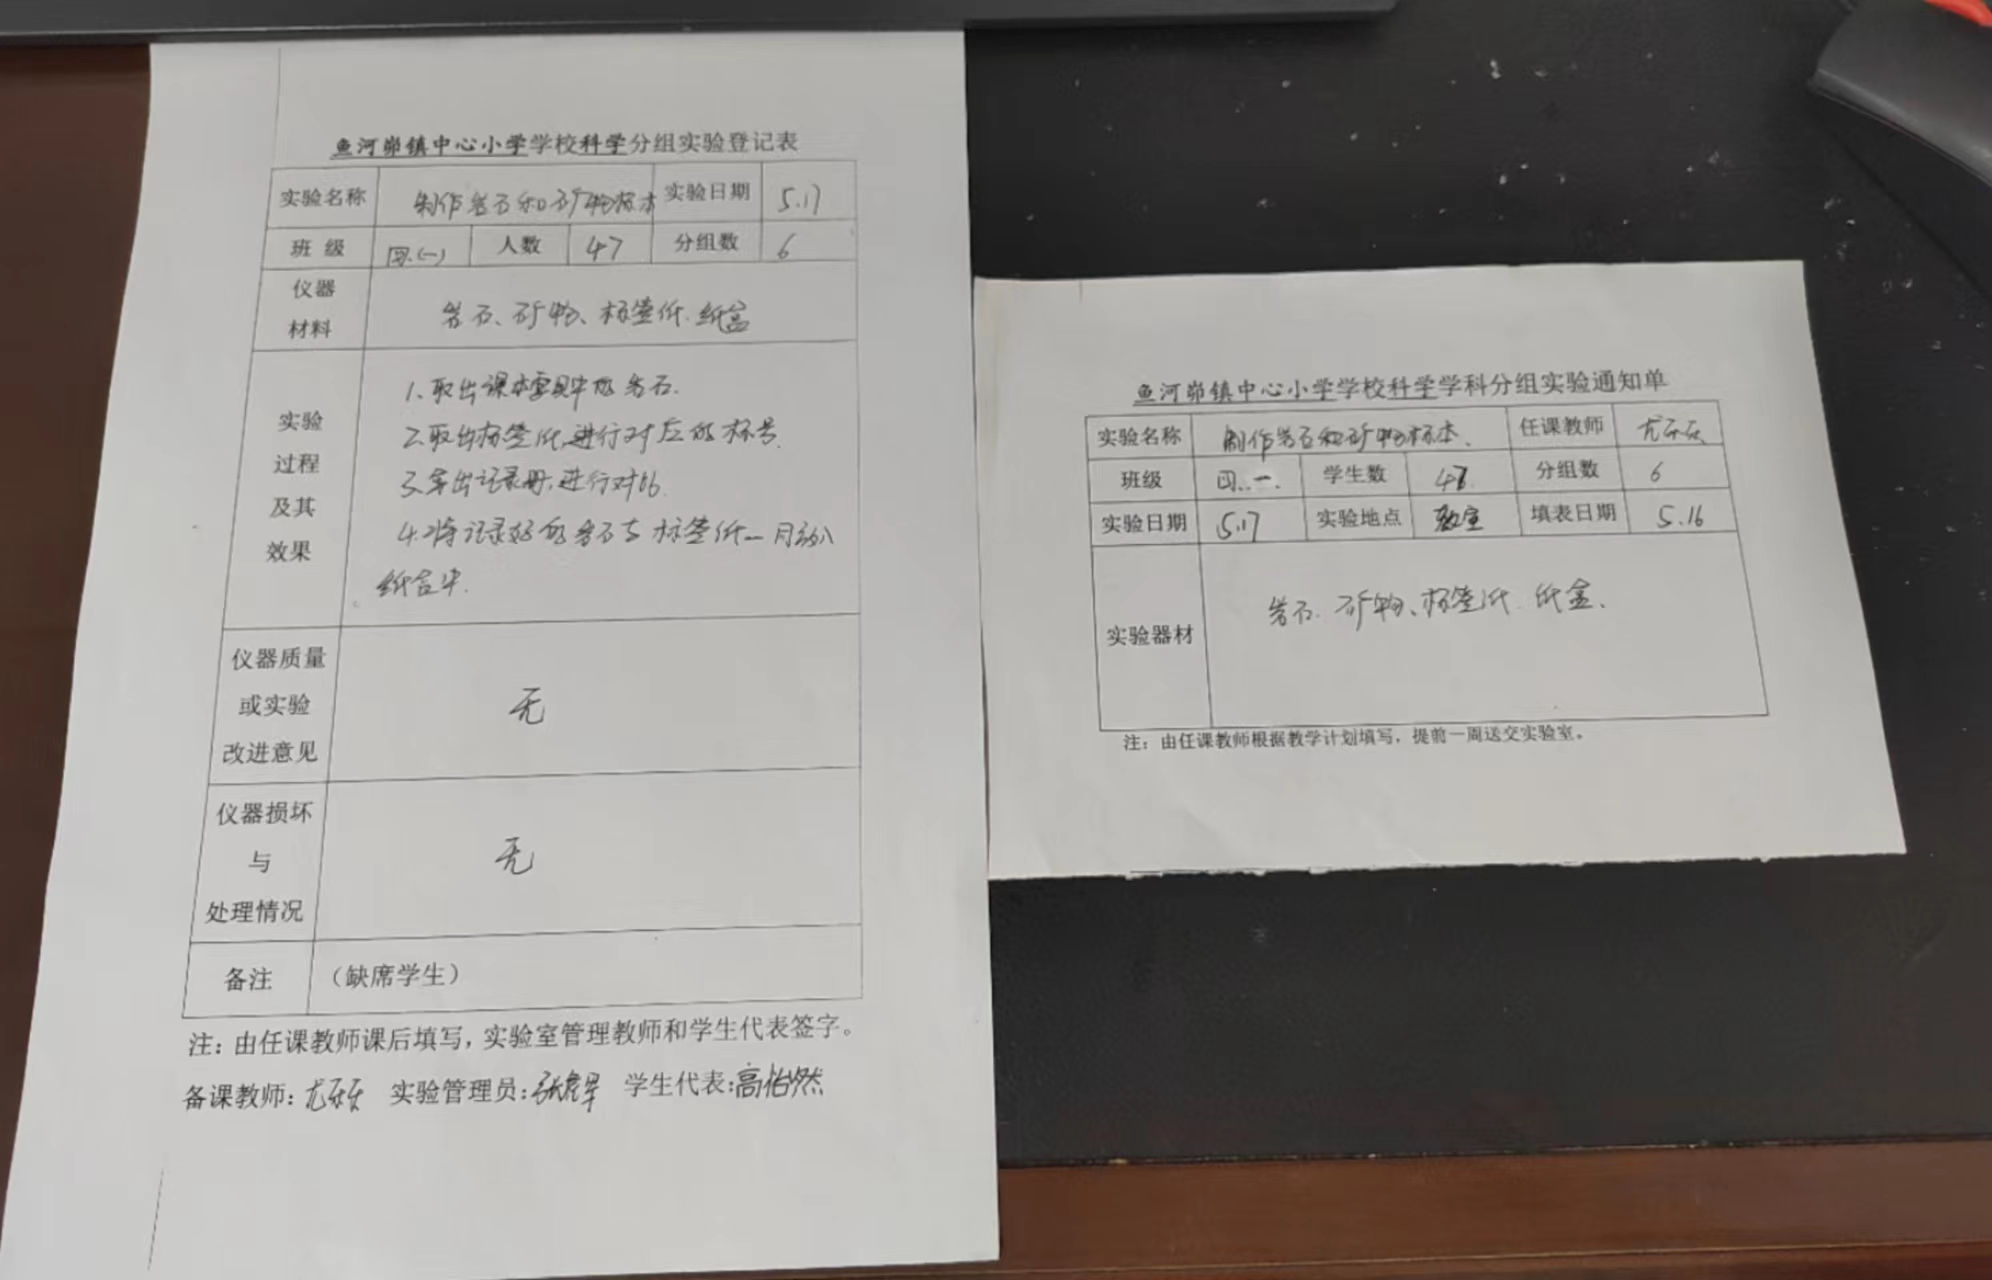 鱼河峁镇中心小学学校科学分组实验登记表
实验名称 制作岩石和矿物标本 实验日期 5.17
班 级 四.(一) 人数 47 分组数 6
仪器
材料
岩石、矿物、标签纸.纸盒
实验
过程
及其
效果
1、取出课本套具中的岩石.
2、取出标签纸,进行对应的标号.
3、拿出记录册,进行对比
4、将记录好的岩石与标签纸一同放入
纸盒中.
仪器质量
或实验
改进意见
无
仪器损坏
与
处理情况
无
备注 (缺席学生)
注：由任课教师课后填写，实验室管理教师和学生代表签字。
备课教师: 实验管理员: 学生代表:高怡然
鱼河峁镇中心小学学校科学学科分组实验通知单
实验名称 制作岩石和矿物标本、 任课教师
班级 四.一. 学生数 分组数 6
实验日期 5.17 实验地点 教室 填表日期 5.16
实验器材
岩石.矿物、标签纸.纸盒、
注：由任课教师根据教学计划填写，提前一周送交实验室。